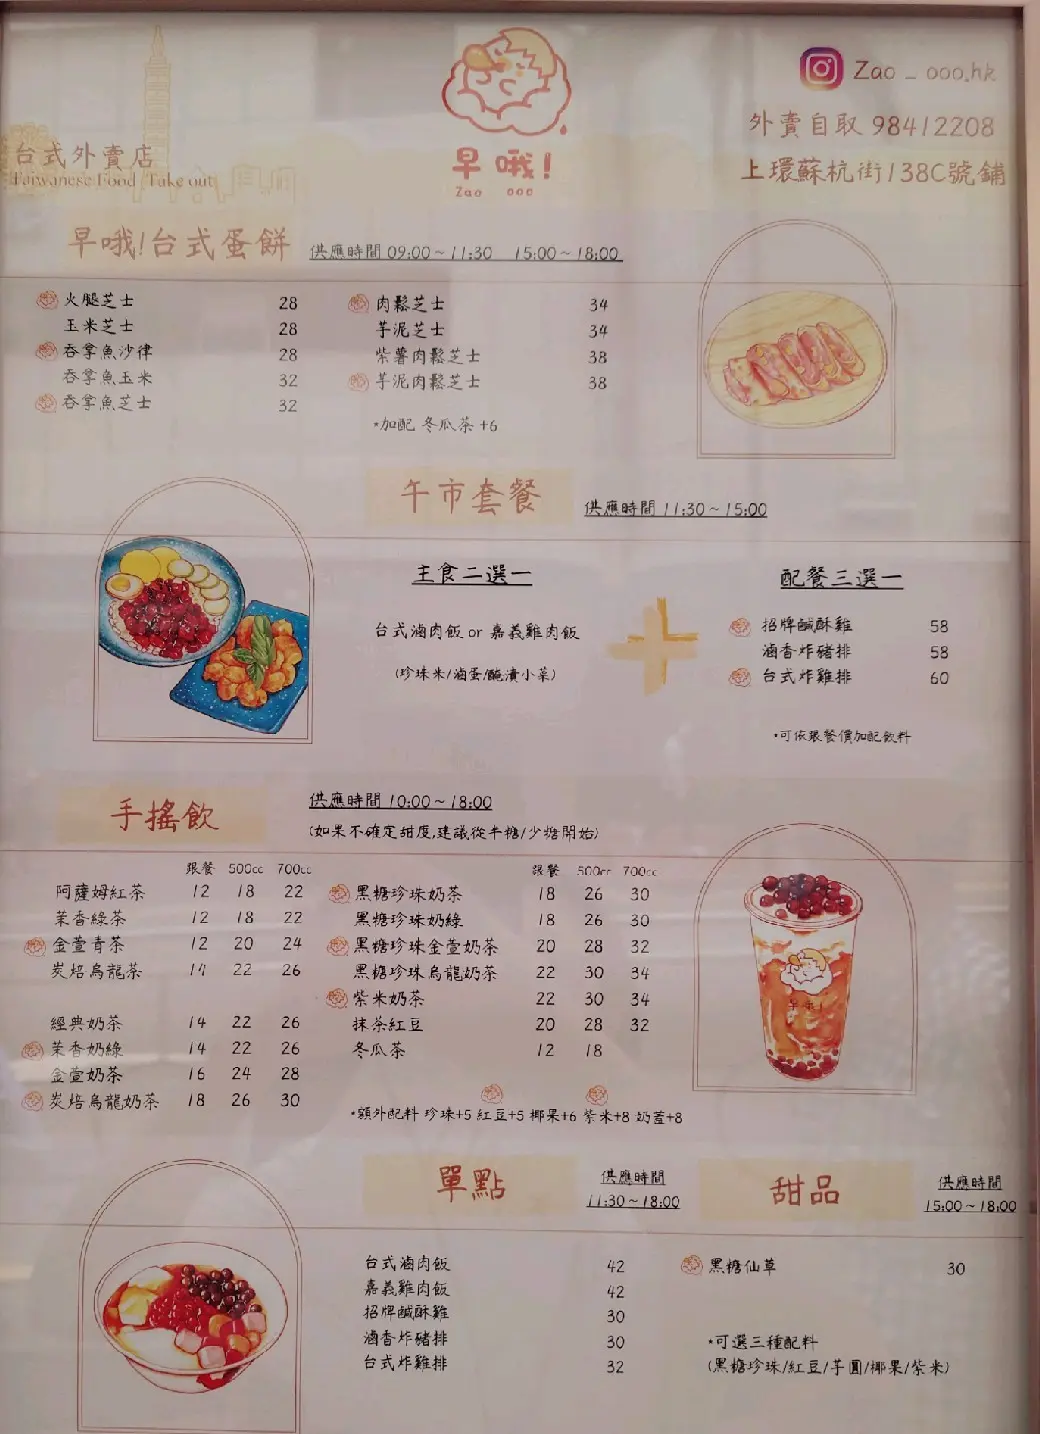 Zao _ ooo.hk
外賣自取 98412208
上環蘇杭街138C號鋪
台式外賣店
Taiwanese Food Take out
早哦!
Zao ooo
早哦!台式蛋餅 供應時間 09:00~11:30 15:00~18:00
火腿芝士 28
玉米芝士 28
吞拿魚沙律 28
吞拿魚玉米 32
吞拿魚芝士 32
肉鬆芝士 34
芋泥芝士 34
紫薯肉鬆芝士 38
芋泥肉鬆芝士 38
*加配 冬瓜茶 +6
午市套餐 供應時間 11:30~15:00
主食二選一
台式滷肉飯 or 嘉義雞肉飯
(珍珠米/滷蛋/醃漬小菜)
配餐三選一
招牌鹹酥雞 58
滷香炸豬排 58
台式炸雞排 60
*可依跟餐價加配飲料
手搖飲 供應時間 10:00~18:00
(如果不確定甜度,建議從半糖/少糖開始)
跟餐 500cc 700cc
阿薩姆紅茶 12 18 22
茉香綠茶 12 18 22
金萱青茶 12 20 24
炭焙烏龍茶 14 22 26
經典奶茶 14 22 26
茉香奶綠 14 22 26
金萱奶茶 16 24 28
炭焙烏龍奶茶 18 26 30
跟餐 500cc 700cc
黑糖珍珠奶茶 18 26 30
黑糖珍珠奶綠 18 26 30
黑糖珍珠金萱奶茶 20 28 32
黑糖珍珠烏龍奶茶 22 30 34
紫米奶茶 22 30 34
抹茶紅豆 20 28 32
冬瓜茶 12 18
*額外配料 珍珠+5 紅豆+5 椰果+6 紫米+8 奶蓋+8
單點 供應時間
11:30~18:00
台式滷肉飯 42
嘉義雞肉飯 42
招牌鹹酥雞 30
滷香炸豬排 30
台式炸雞排 32
甜品 供應時間
15:00~18:00
黑糖仙草 30
*可選三種配料
(黑糖珍珠/紅豆/芋圓/椰果/紫米)